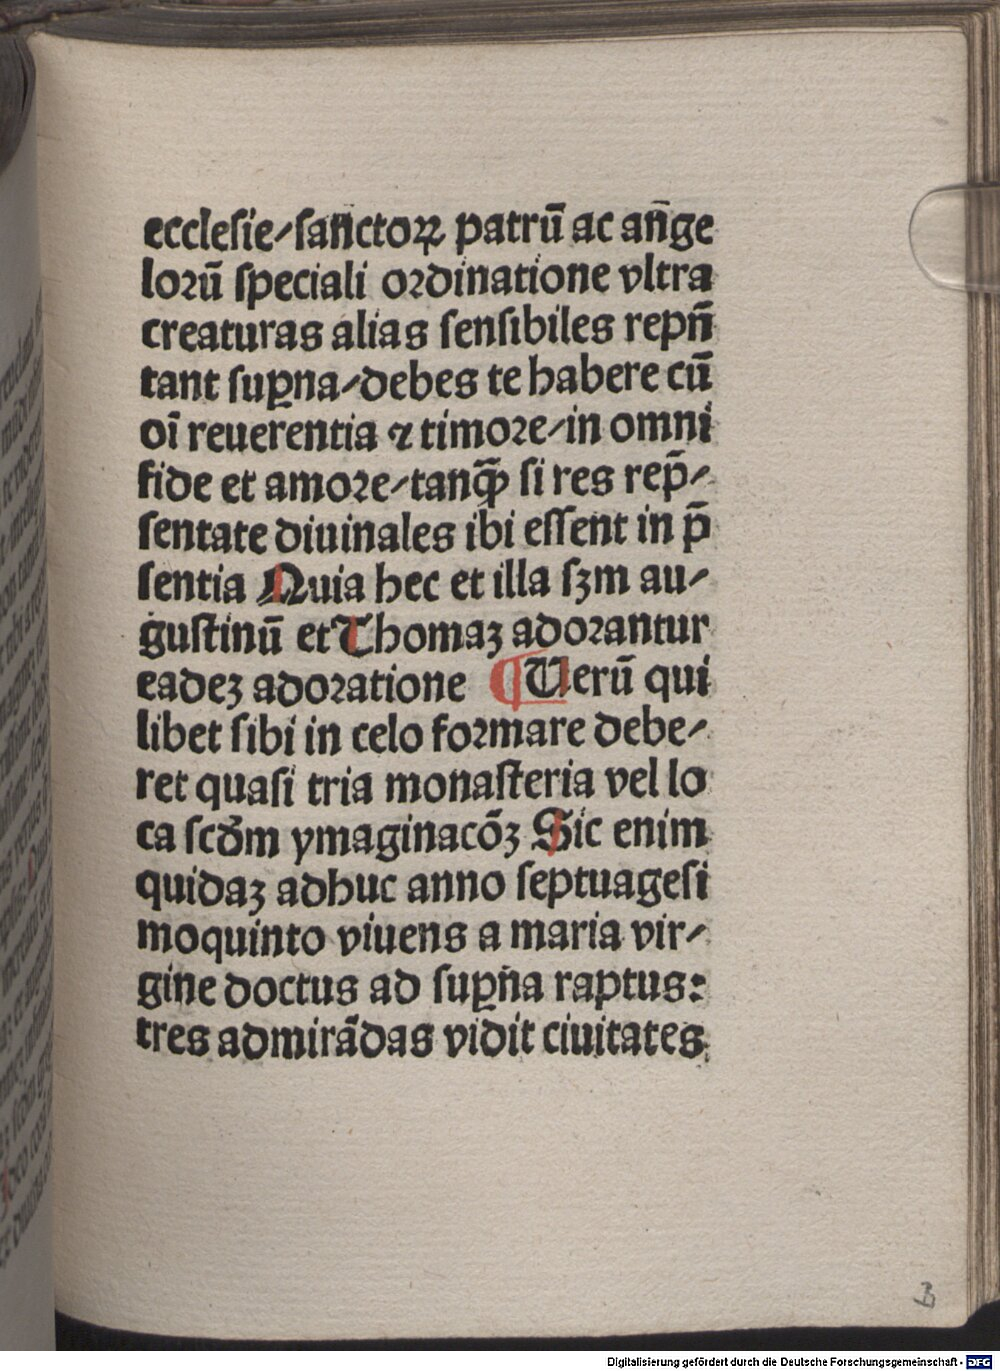 ecclesie/sanctoꝝ patrū ac an̄ge
lorū speciali ordinatione vltra
creaturas alias sensibiles repn̄
tant suꝑna/debes te habere cū
oī reuerentia ⁊ timore/in omni
fide et amore/tanꝙ̄ si res rep̄/
sentate diuinales ibi essent in p̄
sentia Quia hec et illa sꝫm au/
gustinū et Thomaꝫ adorantur
eadeꝫ adoratione ¶ Uerū qui
libet sibi in celo formare debe/
ret quasi tria monasteria vel lo
ca scd̄m ymaginacōꝫ Sic enim
quidaꝫ adhuc anno septuagesi
moquinto viuens a maria vir/
gine doctus ad suꝑn̄a raptus:
tres admirādas vidit ciuitates
B
Digitalisierung gefördert durch die Deutsche Forschungsgemeinschaft - DFG